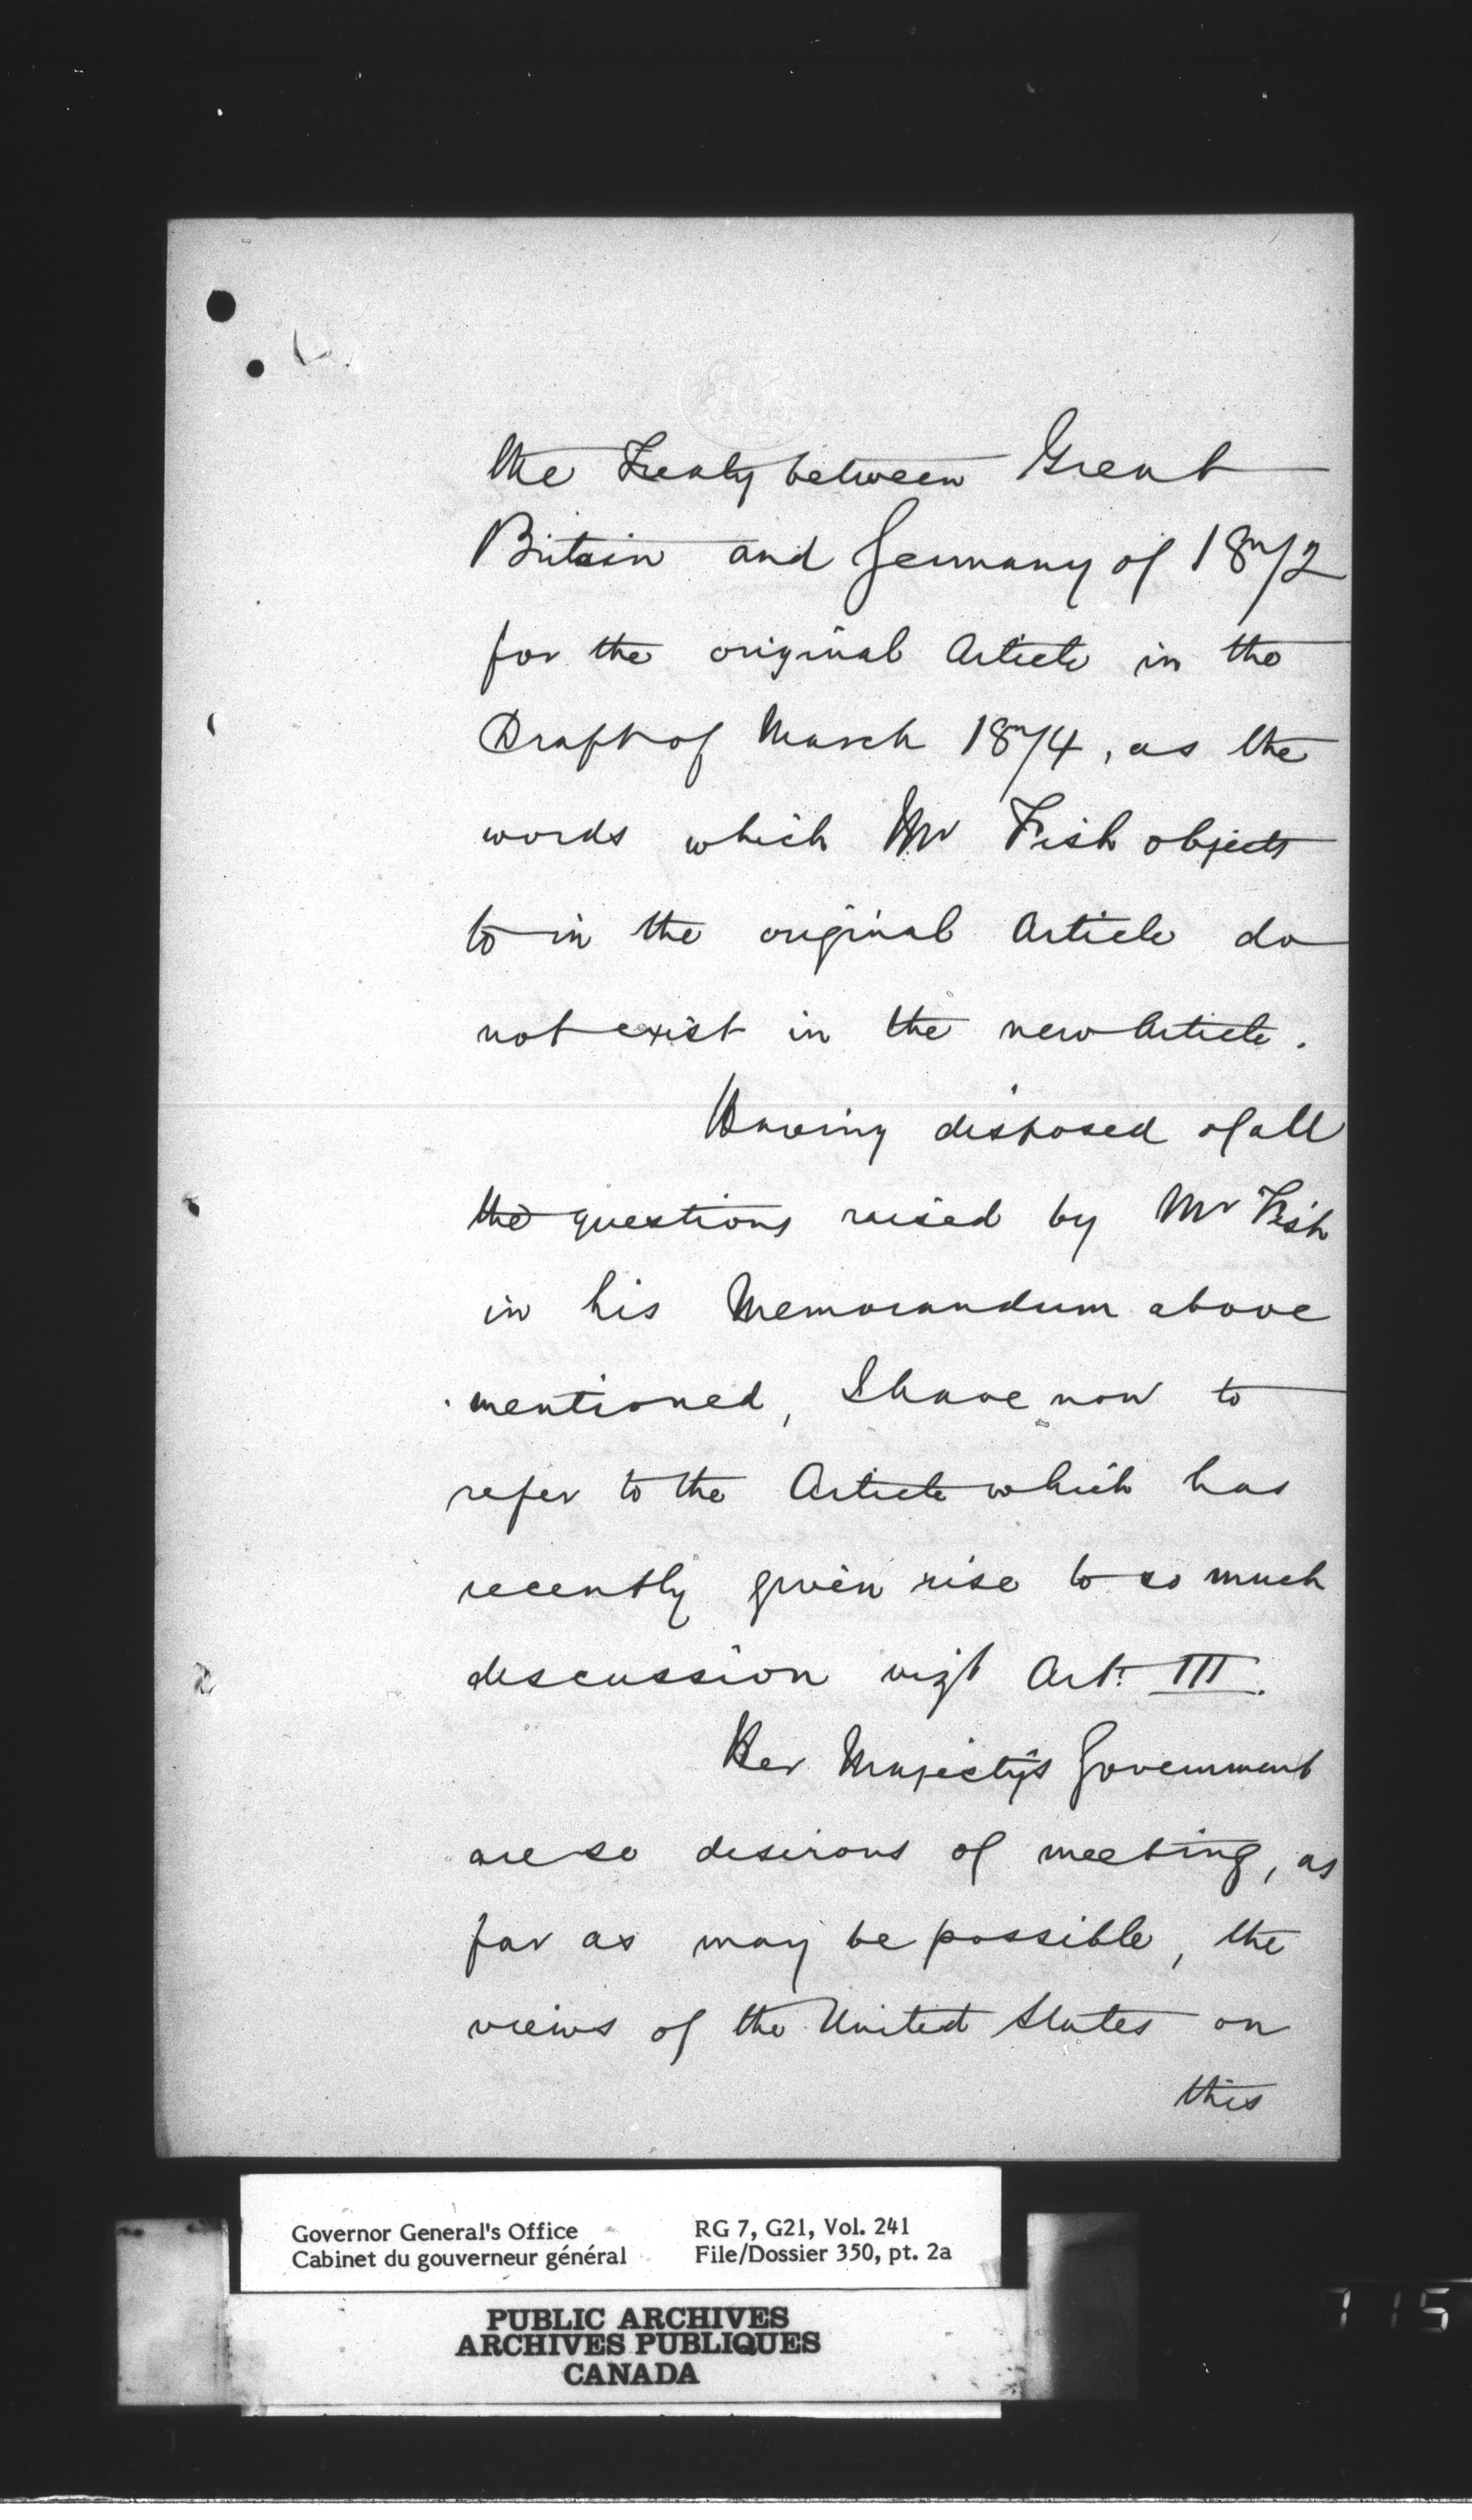 the Treaty between Great
Britain and Germany of 1872
for the original Article in the
Draft of March 1874, as the
words which Mr Fish objects
to in the original Article do
not exist in the new Article.
Having disposed of all
the questions raised by Mr Fish
in his Memorandum above
mentioned, I have now to
refer to the Article which has
recently given rise to so much
discussion vizt Art: III.
Her Majesty's Government
are so desirous of meeting, as
far as may be possible, the
views of the United States on
this
Governor General's Office
Cabinet du gouverneur général
RG 7, G21, Vol. 241
File/Dossier 350, pt. 2a
PUBLIC ARCHIVES
ARCHIVES PUBLIQUES
CANADA
715